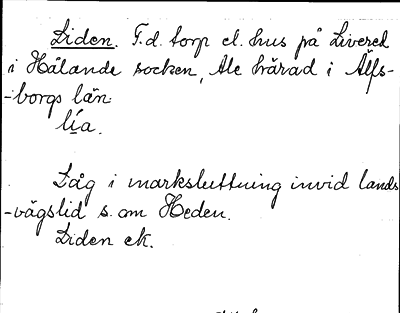 Liden. F.d. torp el. hus på Livered
i Hålanda socken, Ale härad i Älfs-
-borgs län
lía.
Låg i marksluttning invid lands-
-vägslid s. om Heden.
Liden ek.